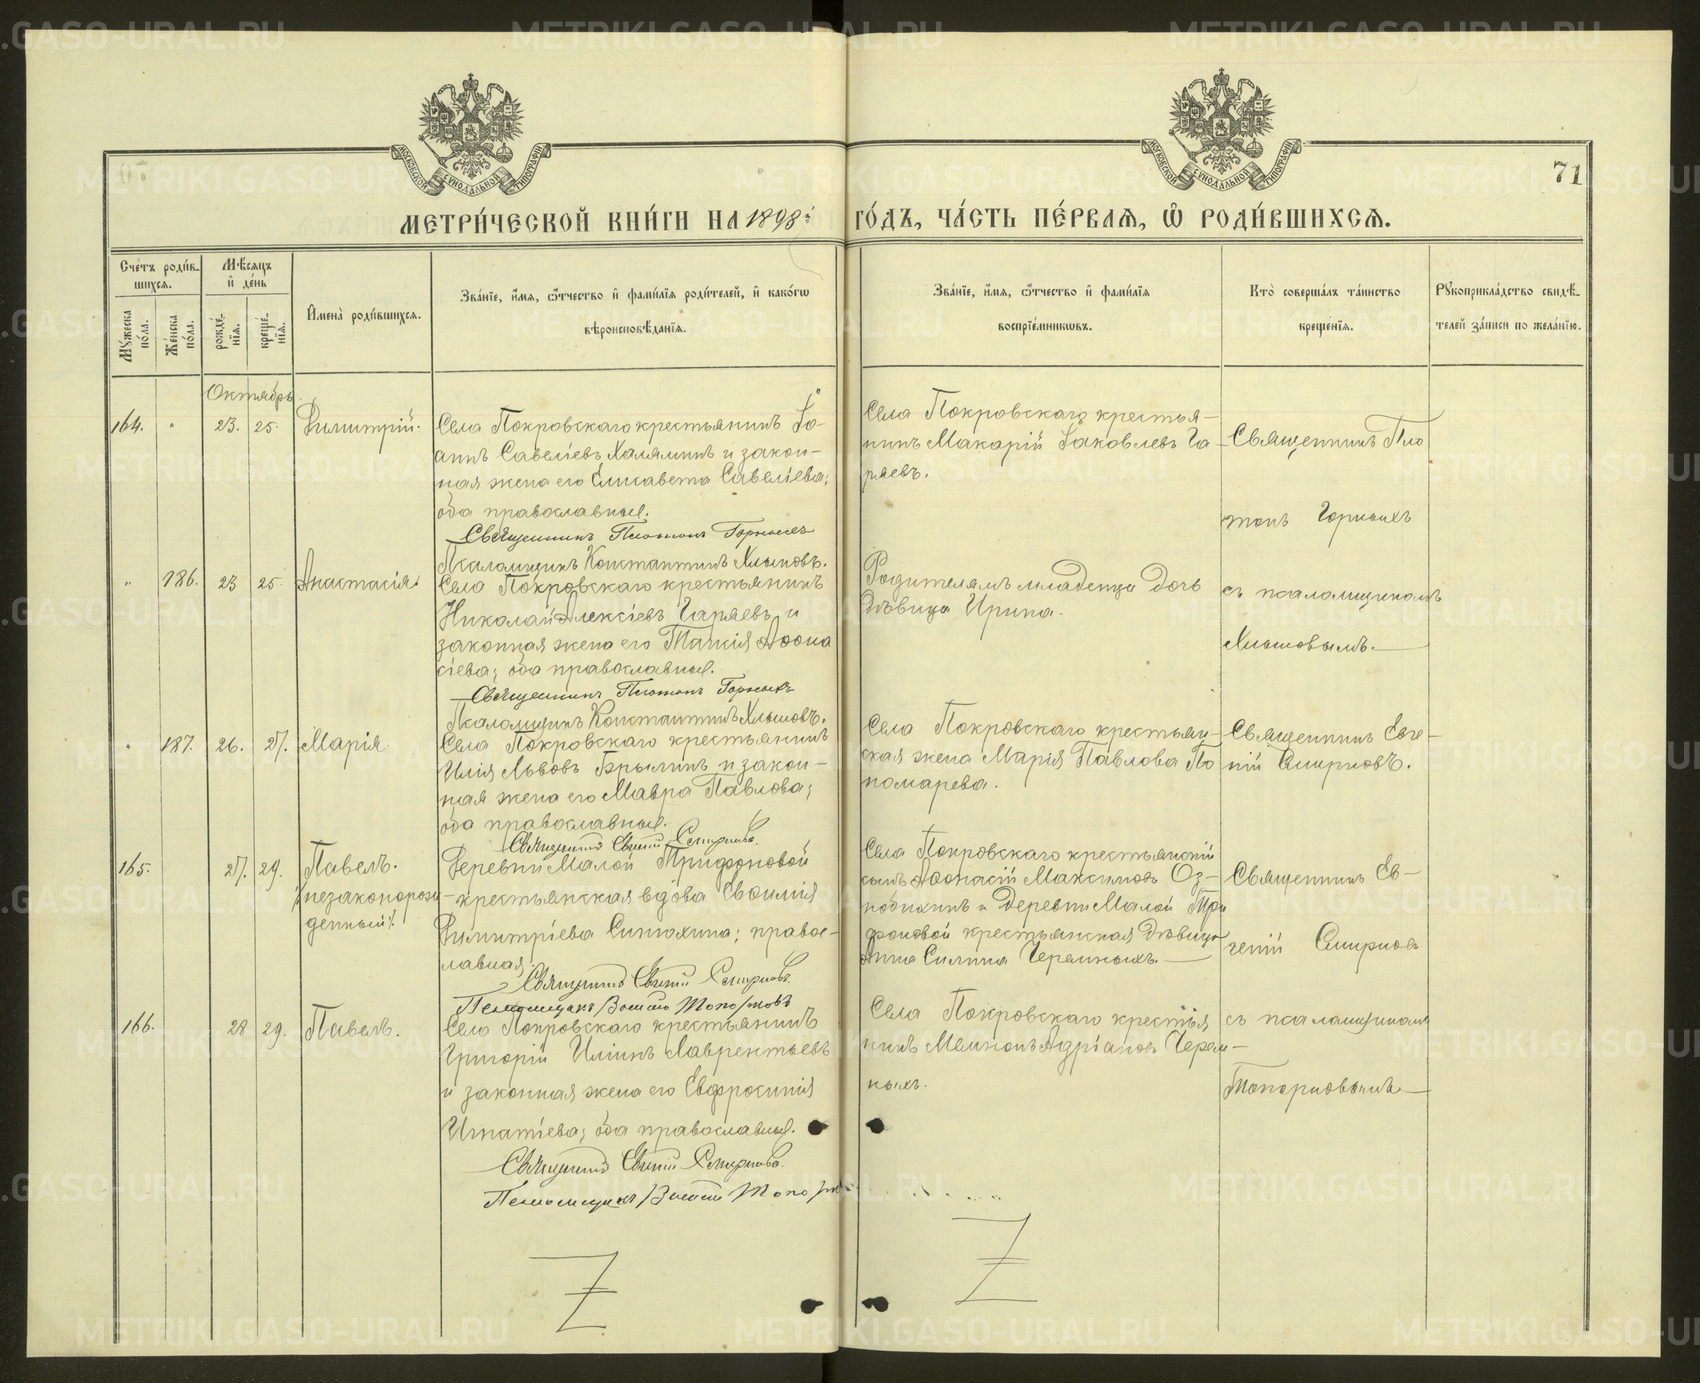 METRIKI.GASO-URAL.RU
МОСКОВСКОЙ СУНОДАЛЬНОЙ ТИПОГРАФІИ
МОСКОВСКОЙ СУНОДАЛЬНОЙ ТИПОГРАФІИ
71
МЕТРИ́ЧЕСКОЙ КНИ́ГИ НА 1898й ГО́ДЪ, ЧА́СТЬ ПЕ́РВАѦ, Ѡ҆ РОДИ́ВШИХСѦ.
Сче́тъ роди́в-
шихсѧ.
Мѣ́сѧцъ
и҆ де́нь
Мꙋ́жеска по́ла.
Же́нска по́ла.
рожде́-
нїѧ.
креще́-
нїѧ.
И҆мена̀ роди́вшихсѧ.
Зва́нїе, и҆́мѧ, ѻ҆́тчество и҆ фами́лїѧ роди́телей, и҆ како́гѡ
вѣроисповѣ́данїѧ.
Зва́нїе, и҆́мѧ, ѻ҆́тчество и҆ фами́лїѧ
воспрїе́мникѡвъ.
Кто̀ соверша́лъ та́инство
креще́нїѧ.
Рꙋкоприкла́дство свидѣ́-
телей за́писи по жела́нїю.
Октябрь.
164. " 23. 25. Димитрій.
Села Покровскаго крестьянинъ Іо-
аннъ Савеліевъ Халяминъ и закон-
ная жена его Елисавета Савеліева;
оба православные.
Священникъ Платонъ Горныхъ
Псаломщикъ Константинъ Хлыновъ.
Села Покровскаго крестья-
нинъ Макарій Іаковлевъ Га-
ряевъ.
Священникъ Пла
тонъ Горныхъ
" 186. 23 25. Анастасія.
Села Покровскаго крестьянинъ
Николай Алексіевъ Гаряевъ и
законная жена его Таисія Аѳана
сіева; оба православные.
Священникъ Платонъ Горныхъ
Псаломщикъ Константинъ Хлыновъ.
Родителямъ младенца дочь
дѣвица Ирина.
съ псаломщикомъ
Хлыновымъ.
" 187. 26. 27. Марія
Села Покровскаго крестьянинъ
Илія Львовъ Брылинъ и закон-
ная жена его Мавра Павлова;
оба православные.
Священникъ Евгеній Смирновъ.
Села Покровскаго крестьян-
ская жена Марія Павлова По
номарева.
Священникъ Евге-
ній Смирновъ.
165. 27. 29. Павелъ.
/незаконорож-
денный/.
Деревни Малой Трифоновой
крестьянская вдова Евѳимія
Димитріева Синюхина; правос-
лавная.
Священникъ Евгеній Смирновъ.
Псаломщикъ Топорковъ
Села Покровскаго крестьянскій
сынъ Аѳонасій Максимовъ Оз-
нобихинъ и деревни Малой Три
фоновой крестьянская дѣвица
Анна Силина Черемныхъ.
Священникъ Ев-
геній Смирновъ
166. 28 29. Павелъ.
Села Покровскаго крестьянинъ
Григорій Иліинъ Лаврентьевъ
и законная жена его Евфросинія
Игнатіева; оба православные.
Священникъ Евгеній Смирновъ.
Псаломщикъ
Села Покровскаго крестья
нинъ Мемнонъ Адріановъ Черем-
ныхъ.
съ псаломщикомъ
Топорковымъ